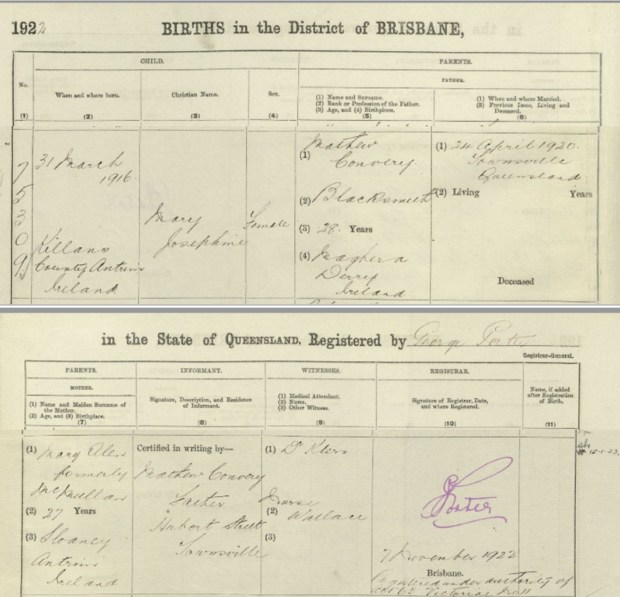 1922
BIRTHS in the District of BRISBANE,
CHILD.
PARENTS.
FATHER.
No.
When and where born.
Christian Name.
Sex.
(1) Name and Surname.
(2) Rank or Profession of the Father.
(3) Age, and (4) Birthplace.
(1) When and where Married.
(2) Previous Issue, Living and
Deceased.
(1)
(2)
(3)
(4)
(5)
(6)
7
5
3
0
9
31 March
1916
Killans
County Antrim
Ireland
Mary
Josephine
Female
Mathew
(1) Convery
(2) Blacksmith
(3) 28 Years
(4) Maghera
Derry
Ireland
(1) 24 April 1920
Townsville
Queensland
(2) Living Years
Deceased
in the State of QUEENSLAND, Registered by George Porter
Registrar-General.
PARENTS.
INFORMANT.
WITNESSES.
REGISTRAR.
Name, if added
after Registration
of Birth.
MOTHER.
(1) Name and Maiden Surname of
the Mother.
(2) Age, and (3) Birthplace.
Signature, Description, and Residence
of Informant.
(1) Medical Attendant.
(2) Nurse.
(3) Other Witness.
Signature of Registrar, Date,
and where Registered.
(7)
(8)
(9)
(10)
(11)
(1) Mary
formerly
McMullan
(2) 27 Years
(3)
Antrim
Ireland
Certified in writing by—
Mathew Convery
Father
Street
Townsville
(1) Dr
Nurse
(2) Wallace
(3)
Porter
7 November 1922
Brisbane.
Registered under authority of